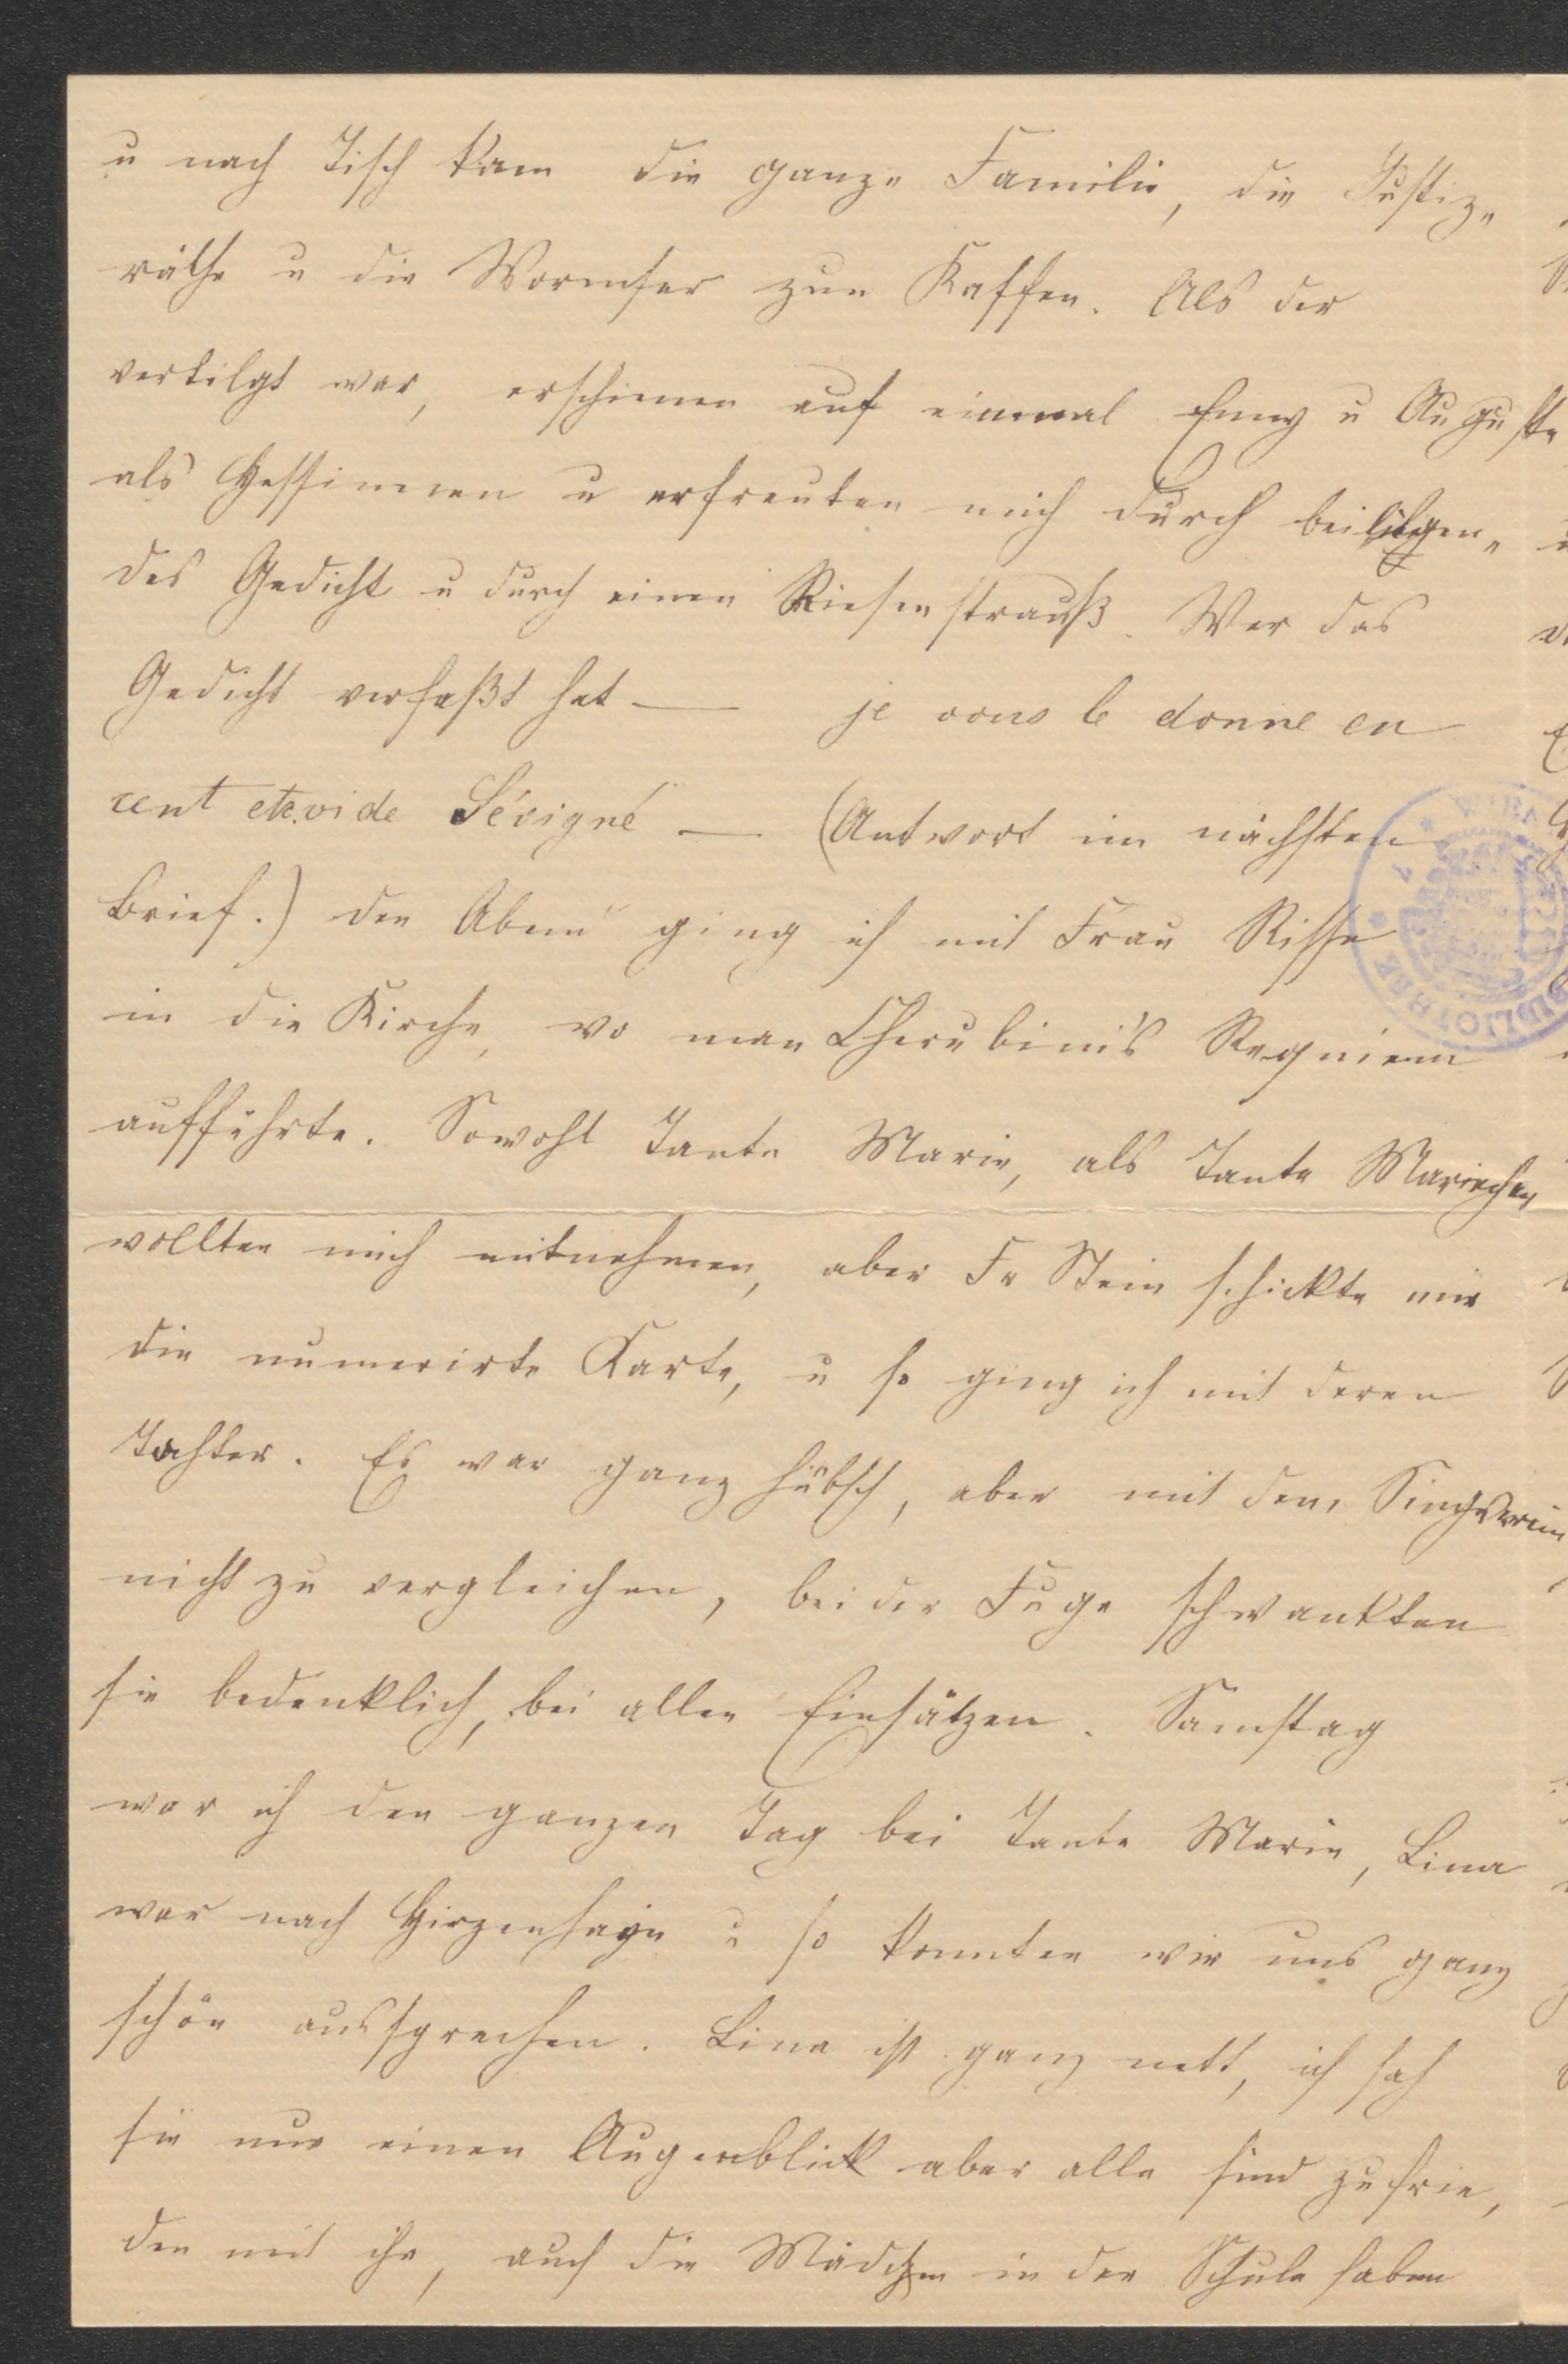 u nach Tisch kam die ganze Familie, die Justiz„
räthe u die Wormser zum Kaffee. Als der
vertilgt war, erschienen auf einmal Emy u Auguste
als Hessinnen u erfreuten mich durch beiliegen„
des Gedicht u durch einen Riesenstrauß. Wer das
Gedicht verfaßt hat — je vous le donne en
cent etc. vide Sévigné — (Antwort im nächsten
Brief.) Den Abend ging ich mit Frau
in die Kirche, wo man Cherubini's Requiem
aufführte. Sowohl Tante Marie, als Tante Mariechen
wollten mich mitnehmen, aber Fr Stein schickte mir
die numerirte Karte, u so ging ich mit deren
Tochter. Es war ganz hübsch, aber mit dem Singverein
nicht zu vergleichen, bei der Fuge schwankten
sie bedenklich, bei allen Einsätzen. Samstag
war ich den ganzen Tag bei Tante Marie, Lina
war nach Hirzenhayn u so konnten wir uns ganz
schön aussprechen. Lina ist ganz nett, ich sah
sie nur einen Augenblick aber alle sind zufrie„
den mit ihr, auch die Mädchen in der Schule haben